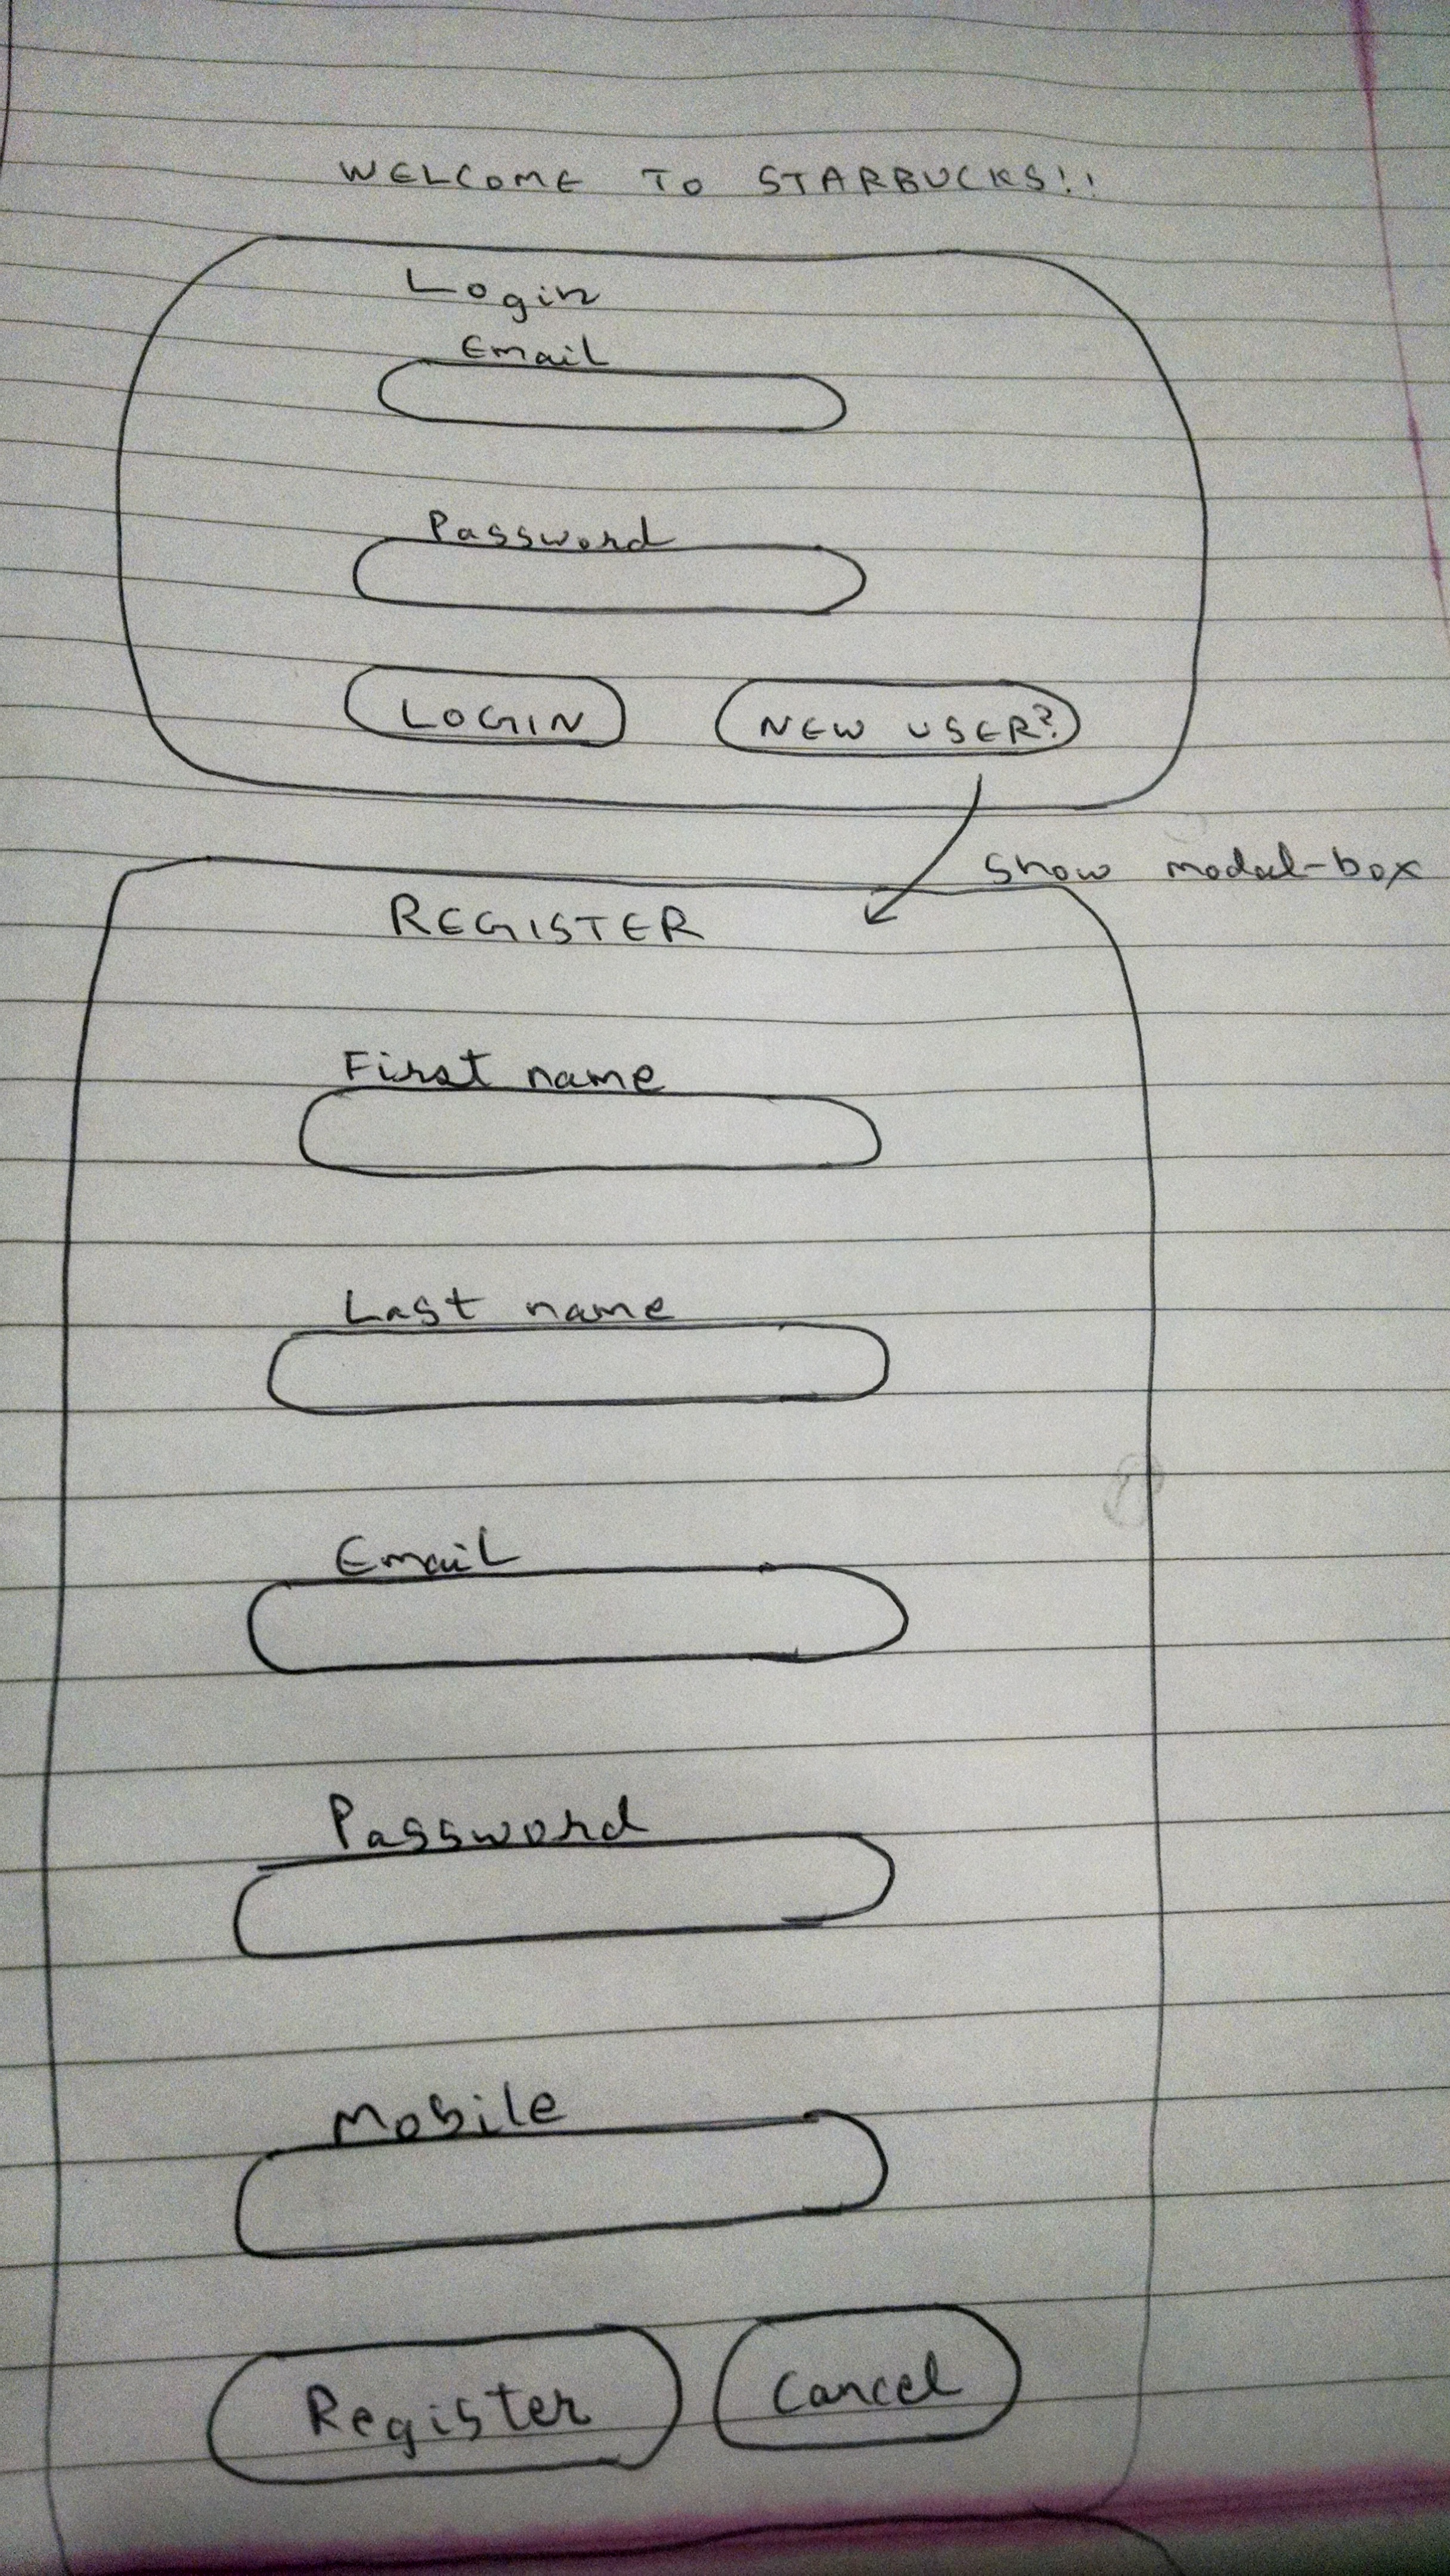 WELCOME TO STARBUCKS!!
Login
Email
Password
LOGIN NEW USER?
Show modal-box
REGISTER
First name
Last name
Email
Password
Mobile
Register Cancel